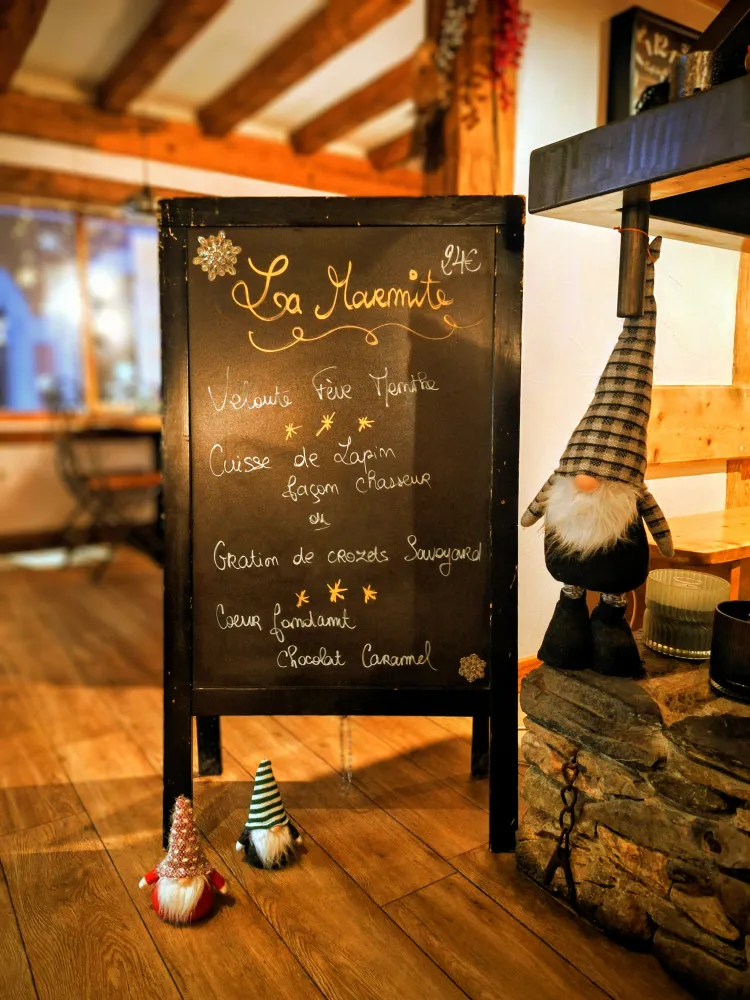 24€
La Marmite
Velouté Fève Menthe
Cuisse de Lapin
façon chasseur
ou
Gratin de crozets Savoyard
Coeur fondant
chocolat Caramel